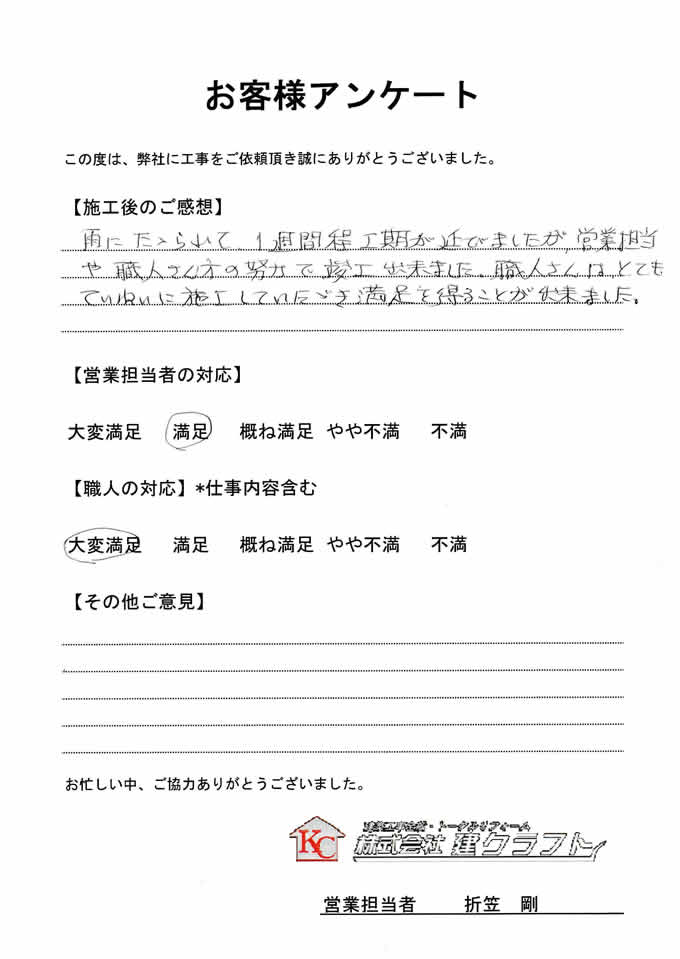 お客様アンケート
この度は、弊社に工事をご依頼頂き誠にありがとうございました。
【施工後のご感想】
雨にたゝられて、1週間程工期が延びましたが、営業担当
や職人さん方の努力で竣工出来ました。職人さんは、とても
ていねいに施工していただき満足を得ることが出来ました。
【営業担当者の対応】
大変満足 満足 概ね満足 やや不満 不満
【職人の対応】*仕事内容含む
大変満足 満足 概ね満足 やや不満 不満
【その他ご意見】
お忙しい中、ご協力ありがとうございました。
KC
トータルリフォーム
株式会社 建クラフト
営業担当者 折笠 剛